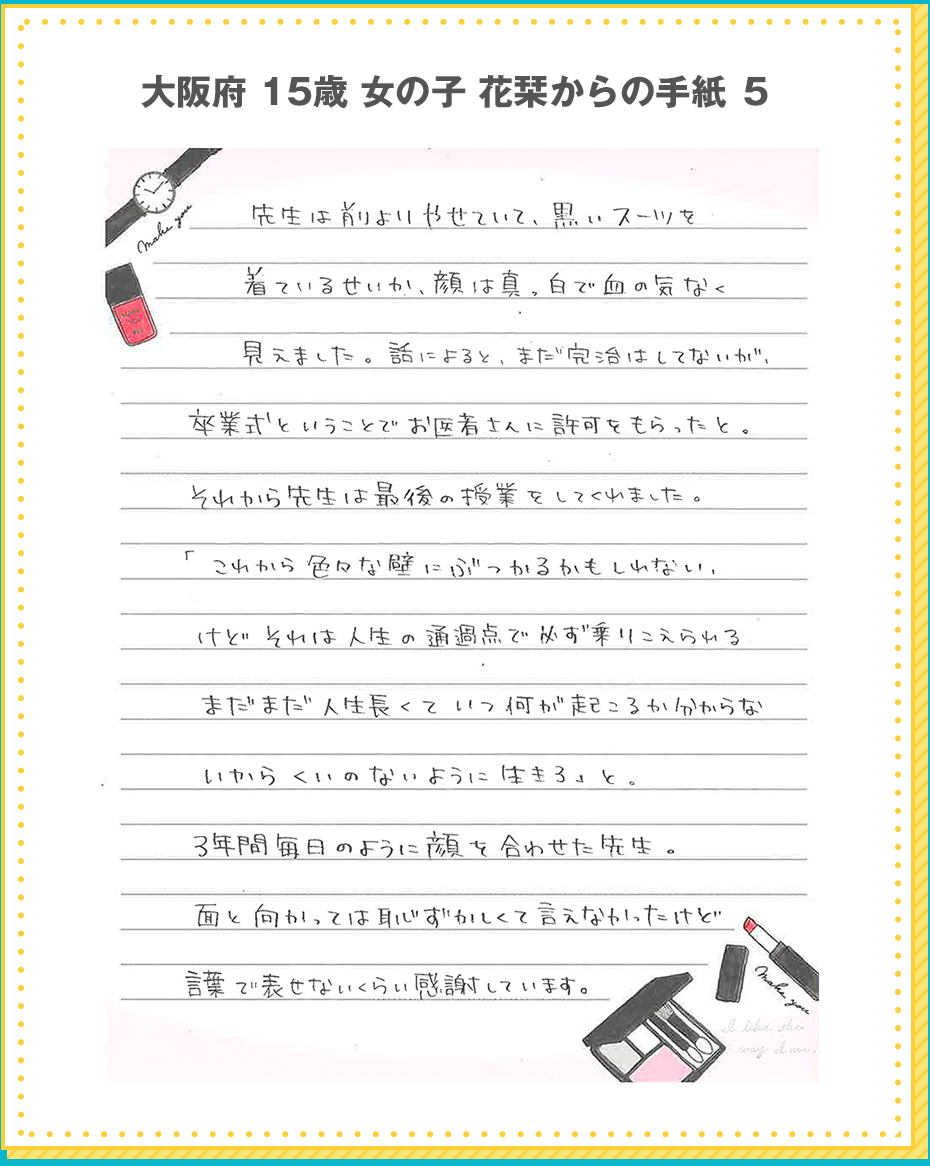 大阪府 15歳 女の子 花栞からの手紙 5
make you
先生は前よりやせていて、黒いスーツを
着ているせいか、顔は真っ白で血の気なく
見えました。話によると、まだ完治はしてないが、
卒業式ということでお医者さんに許可をもらったと。
それから先生は最後の授業をしてくれました。
「これから色々な壁にぶつかるかもしれない、
けどそれは人生の通過点で必ず乗りこえられる
まだまだ人生長くていつ何が起こるか分からな
いからくいのないように生きろ」と。
3年間毎日のように顔を合わせた先生。
面と向かっては恥ずかしくて言えなかったけど
言葉で表せないくらい感謝しています。
make you
I like the
way I am.